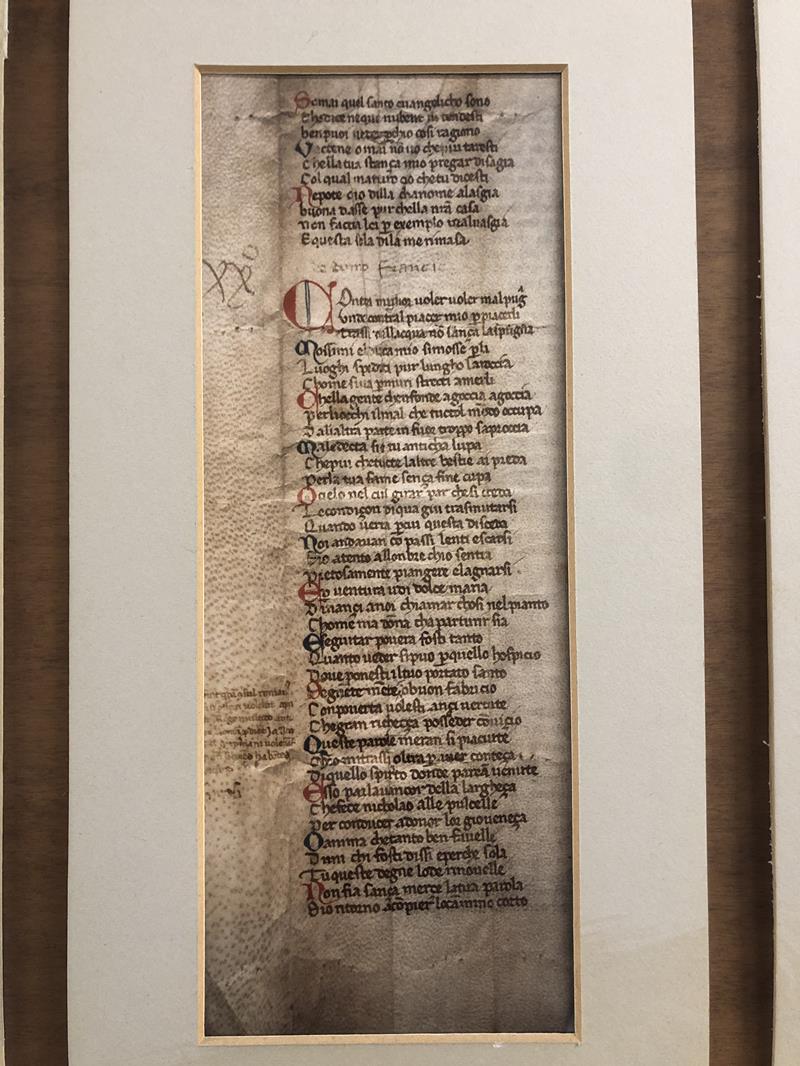 Semai quel santo euangelicho sono
Che dice neque nubent in tendesti
ben puoi ueder pchio cosi ragiono
Vattene omai nō uo che piu taresti
Chella tua stança mio pregar disagia
Col qual maturo cio che tu dicesti
Nepote o io dilla cha nome alasgia
buona dasse pur chella nrā casa
non faccia lei p exemplo maluasgia
E questa sola dila me rimasa
XX
Contra miglior uoler uoler mal pug
unde contral piacer mio p piacerli
trassi dellacqua nō sança la spugna
Mossimi el duca mio si mosse pli
Luoghi spediti pur lungho la roccia
Chome si ua p muri strecti a merli
Chella gente che fonde a goccia a goccia
Per liocchi il mal che tuctol mōdo occupa
Dalialtra parte in fuor troppo saproccia
Maledecta sie tu anticha lupa
Che piu che tucte laltre bestie ai preda
Per la tua fame sença fine cupa
O cielo nel cui girar par che si creda
Le condiçon di qua giu trasmutarsi
Quando uerra p cui questa disceda
Noi andauan cō passi lenti e scarsi
Et io atento allonbre chio sentia
Pietosamente piangere e lagnarsi
E p uentura udi dolce maria
Dinançi a noi chiamar chosi nel pianto
Chome fa dōna cha parturir sia
E seguitar pouera fosti tanto
Quanto ueder si puo p quello hospicio
Doue ponesti il tuo portato santo
Seguentemēte o buon fabricio
Con pouerta uolesti ançi uertute
Che gran richeçça posseder cō uicio
Queste parole meran si piaciute
Chio mi trassi oltra p auer conteça
Di quello spirto donde parean uenute
Esso parlaua ancor della largheça
Che fece nicholao alle pulcelle
Per conducer adonor lor gioueneça
O anima che tanto ben fauelle
Dimi chi fosti dissi e perche sola
Tu queste degne lode rinouelle
Non fia sança merce la tua parola
Sio ritorno a cōpier lo camino corto